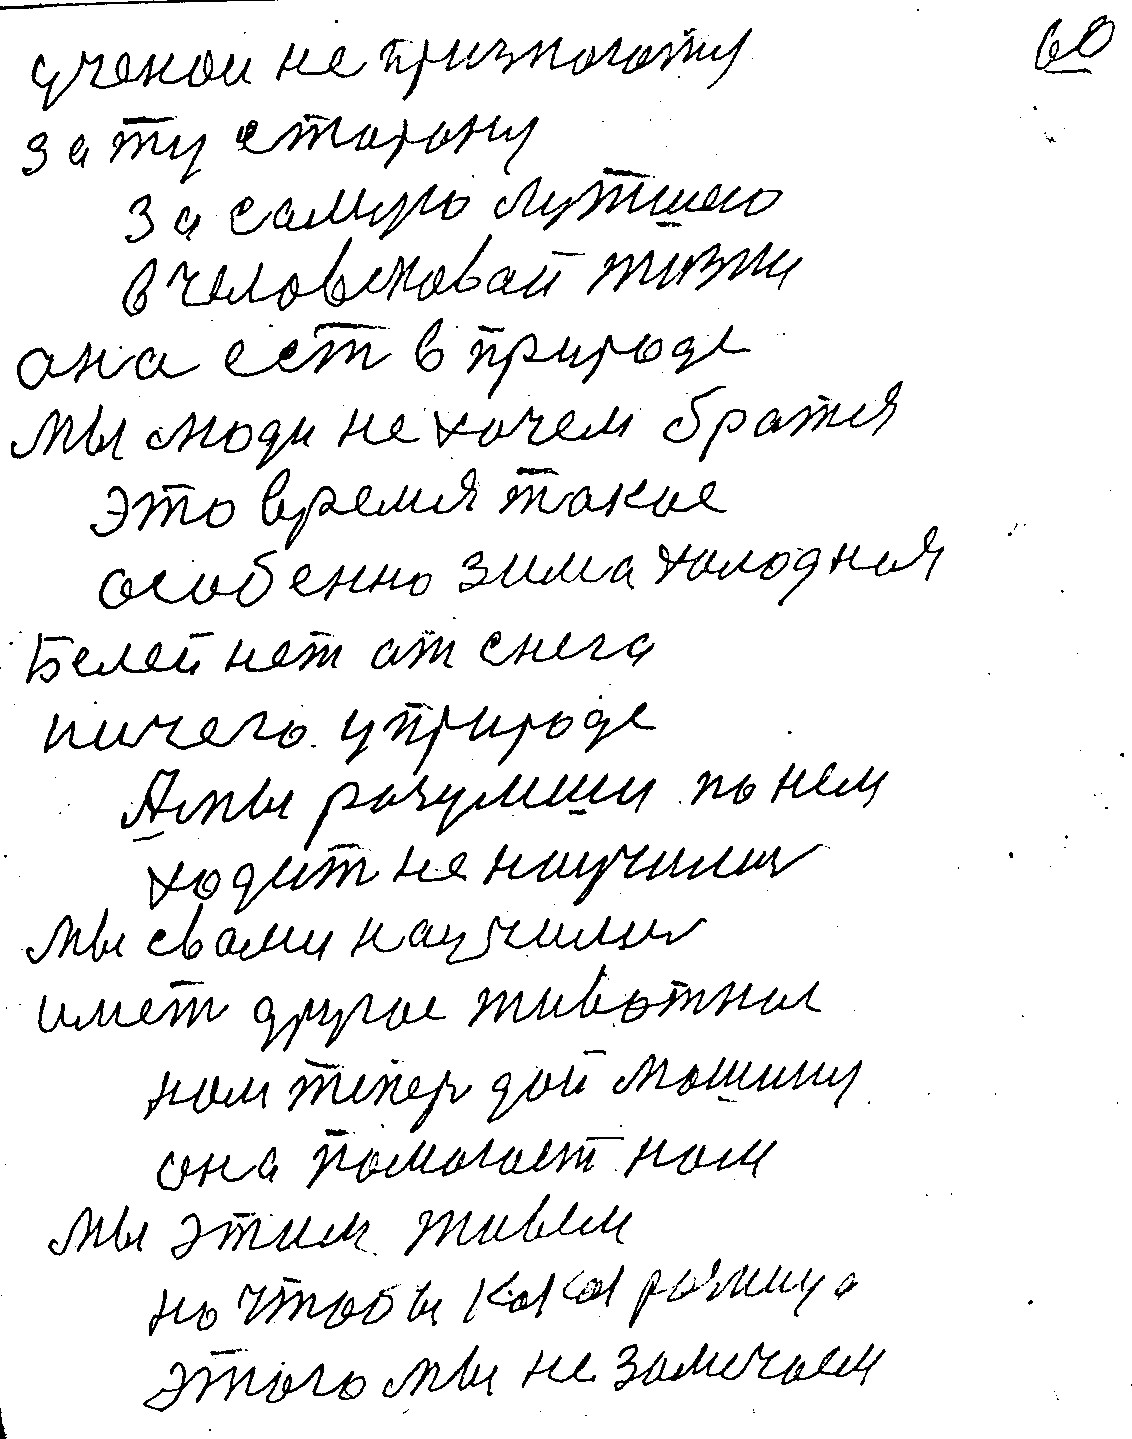 60
ученои не признаютя
за ту сторону
за самую лутшею
в человековай жизни
она ест в природе
мы люди не хочем братия
это время такое
особенно зима холодная
Белей нет от снега
ничего у природе
А мы разумиши по нем
ходит не научилис
мы свами научилис
имет другое животное
нам тепер дай машину
она помогает нам
мы этим живем
но чтобы кокоя розница
этого мы не замечаем